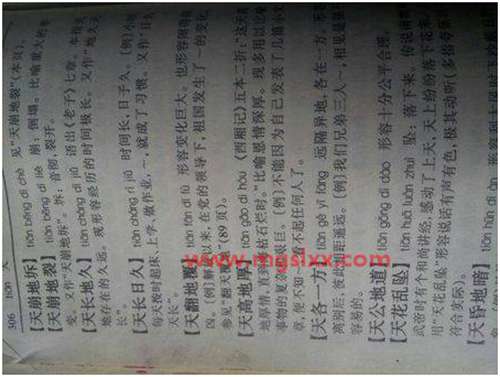 306 tiān 天
【天崩地坼】tiān bēng dì chè 见“天崩地裂”(本页)。
【天崩地裂】tiān bēng dì liè 崩:倒塌。比喻重大的事
变。又作“天崩地坼”。坼:音彻,裂开。
【天长地久】tiān cháng dì jiǔ 语出《老子》七章。本指天
地存在的久远。现形容经历的时间极长。又作“地久天
长”。
【天长日久】tiān cháng rì jiǔ 时间长,日子久。〔例〕小明
每天按时起床,上学,做作业,~,就成了习惯。又作“日久
天长”。
【天翻地覆】tiān fān dì fù 形容变化巨大。也形容闹得很
凶。〔例〕解放以来,在党的领导下,祖国发生了~的变化。
参见“翻天覆地”(89页)。
【天高地厚】tiān gāo dì hòu 《西厢记》五本二折:“这天高
地厚情,直到海枯石烂时。”比喻恩情深厚。现多用以比喻
事物的复杂、艰巨。〔例〕不能因为自己发表了几篇小文
章,便不知~,看不起任何人了。
【天各一方】tiān gè yī fāng 远隔异地,各在一方。形容
离别后,彼此相距遥远。〔例〕我们兄弟三人~,相见是很不
容易的。
【天公地道】tiān gōng dì dào 形容十分公平合理。
【天花乱坠】tiān huā luàn zhuì 坠:落下来。传说梁
武帝时有个和尚讲经,感动了上天,天上纷纷落下花来。
用“天花乱坠”形容说话有声有色,极其动听(多指夸张不
符合实际)。
【天昏地暗】tiān hūn dì àn
www.mgslxx.com